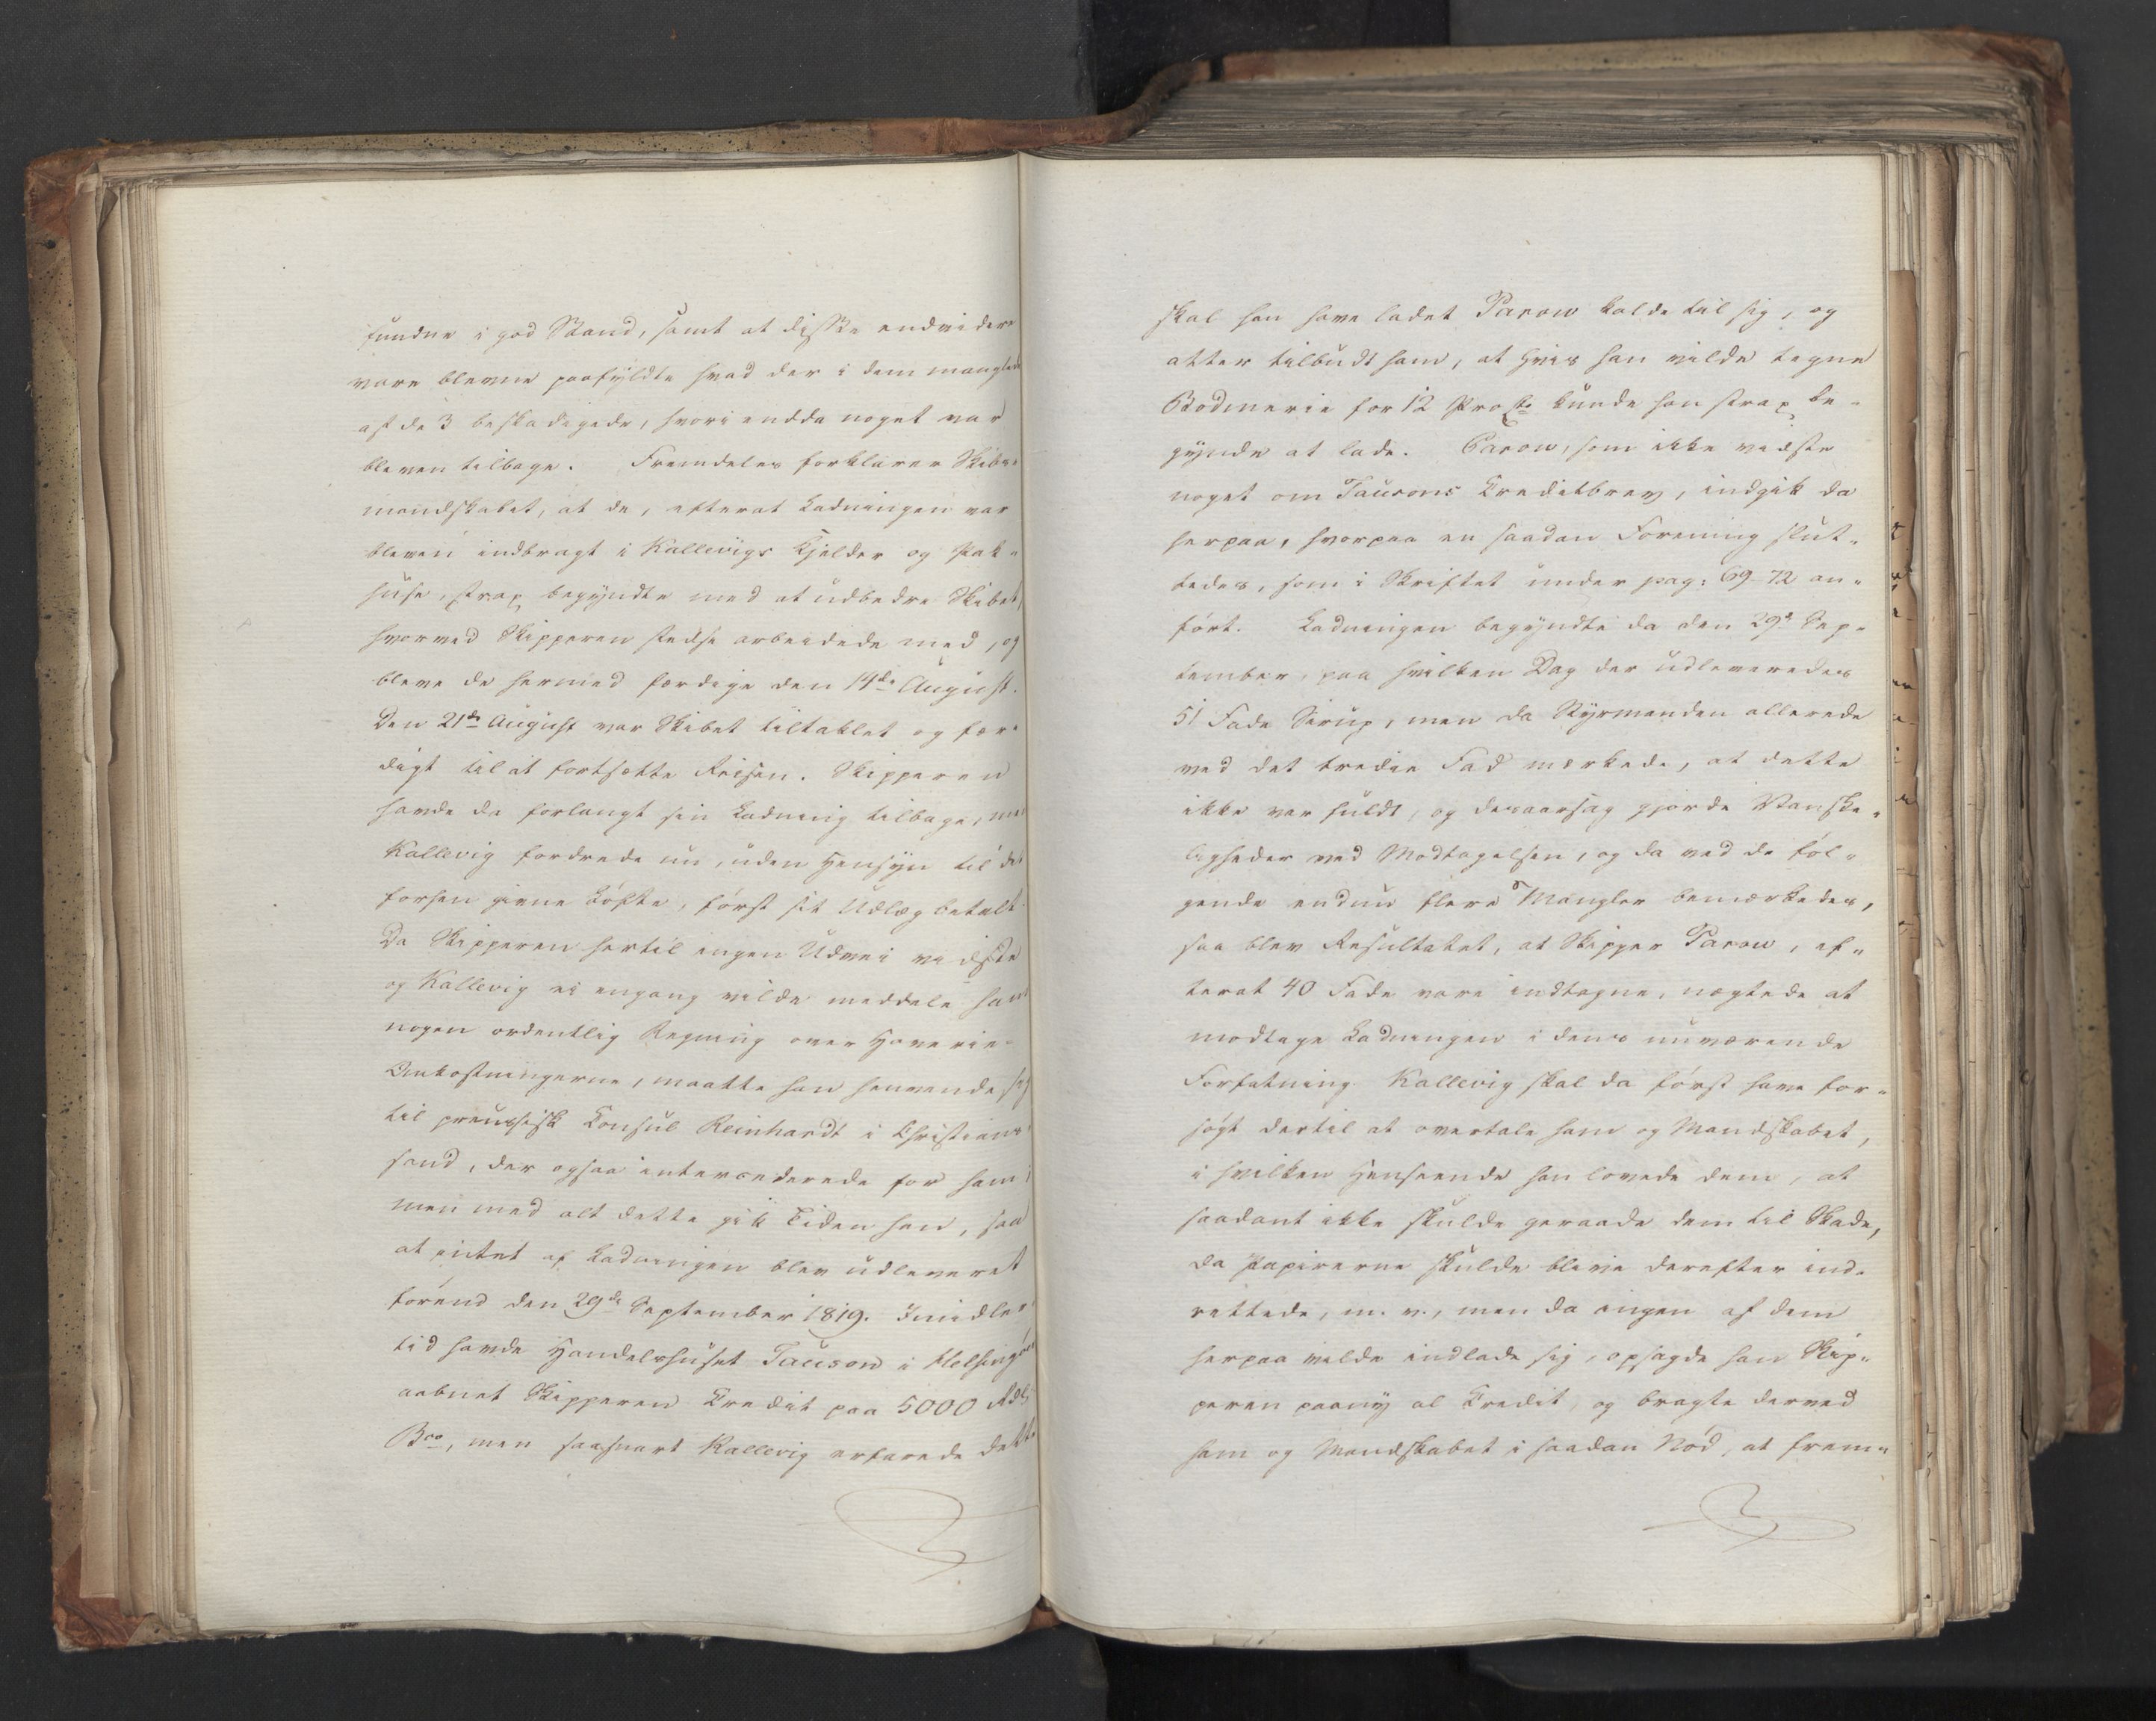 fundne i god Stand, samt at disse endvidere
vare blevne paafyldte hvad der i dem manglede
af de 3 beskadigede, hvori endda noget var
bleven tilbage. Fremdeles forklarer Skibs-
mandskabet, at de, efterat Ladningen var
bleven indbragt i Kallevigs Kjelder og Pak-
huse, strax begyndte med at udbedre Skibet,
hvorved Skipperen stedse arbeidede med, og
bleve de hermed færdige den 14de August.
Den 21de August var Skibet tiltaklet og fær-
digt til at fortsætte Reisen. Skipperen
havde da forlangt sin Ladning tilbage, men
Kallevig fordrede nu, uden Hensyn til det
forhen givne Løfte, først sit Udlæg betalt.
Da Skipperen hertil ingen Udvei vidste
og Kallevig ei engang vilde meddele ham
nogen ordentlig Regning over Haverie-
Omkostningerne, maatte han henvende sig
til preussisk Consul Reinhardt i Christian-
sand, der ogsaa intercederede for ham;
men med alt dette gik Tiden hen, saa
at intet af Ladningen blev udleveret
førend den 29de September 1819. Imidler-
tid havde Handelshuset Tauson i Helsingøer
aabnet Skipperen Credit paa 5000 Rdl
Bco, men saasnart Kallevig erfarede dette
skal han have ladet Parow kalde til sig, og
atter tilbudt ham, at hvis han vilde tegne
Bodmerie for 12 Pro Cto kunde han strax be-
gynde at lade. Parow, som ikke vidste
noget om Tausons Creditbrev, indgik da
herpaa, hvorpaa en saadan Forening slut-
tedes, som i Skriftet under pag: 69-72 an-
ført. Ladningen begyndte da den 29d Sep-
tember, paa hvilken Dag der udleveredes
51 Fade Sirup, men da Styrmanden allerede
ved det tredie Fad mærkede, at dette
ikke var fuldt, og desaarsag gjorde Vanske-
ligheder ved Modtagelsen, og da ved de føl-
gende endnu flere Mangler bemærkedes,
saa blev Resultatet, at Skipper Parow, ef-
terat 40 Fade vare indtagne, nægtede at
modtage Ladningen i dens nuværende
Forfatning. Kallevig skal da først have for-
søgt dertil at overtale ham og Mandskabet,
i hvilken Henseende han lovede dem, at
saadant ikke skulde geraade dem til Skade,
da Papirerne skulde blive derefter ind-
rettede, m. v., men da ingen af dem
herpaa vilde indlade sig, opsagde han Skip-
peren paany al Credit, og bragte derved
ham og Mandskabet i saadan Nød, at frem-